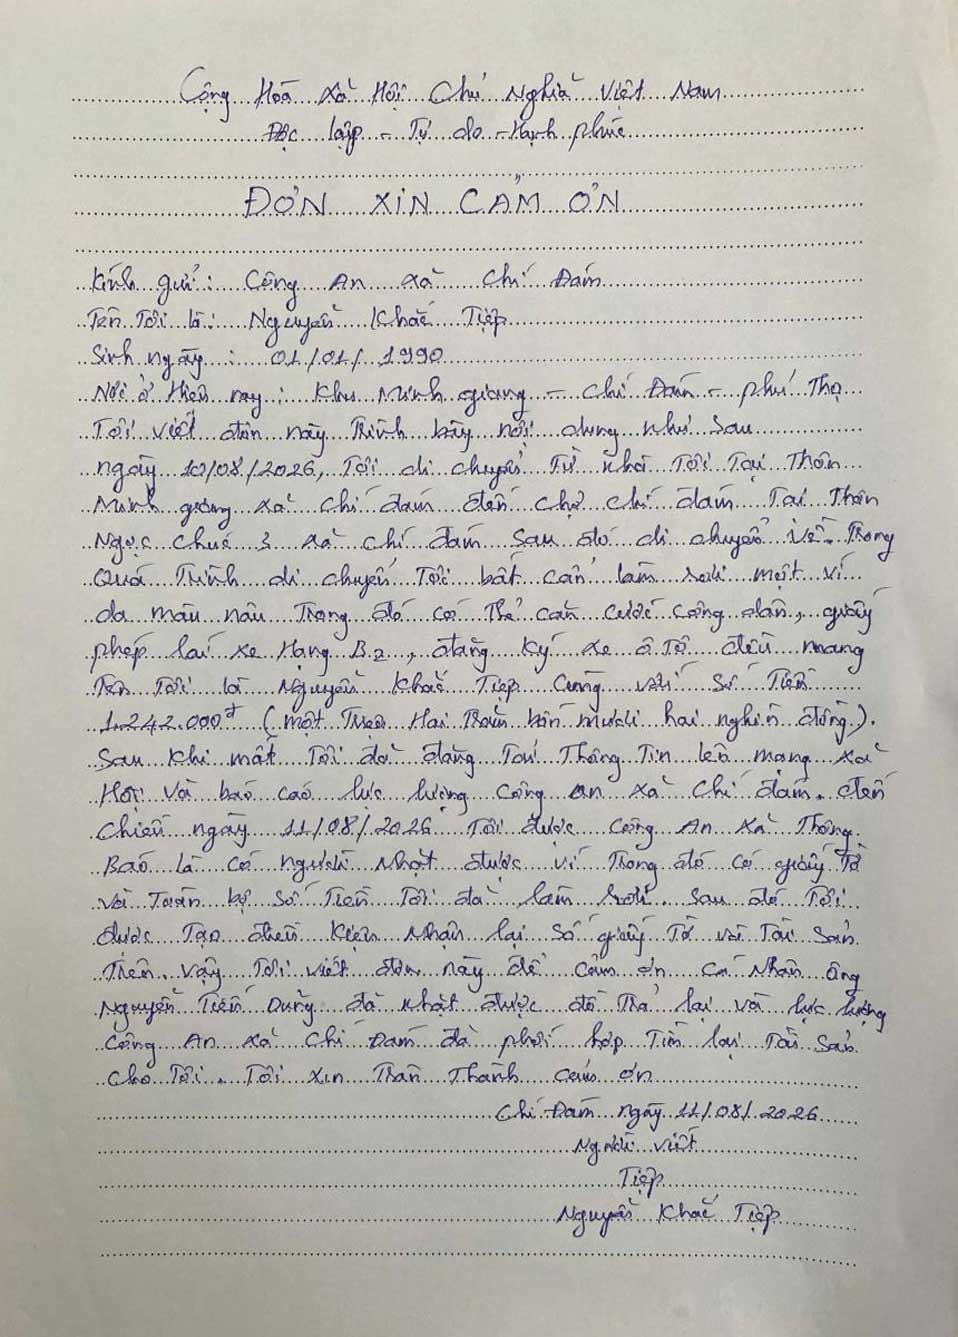 Cộng Hoà Xã Hội Chủ Nghĩa Việt Nam
Độc lập - Tự do - Hạnh phúc
ĐƠN XIN CẢM ƠN
Kính gửi: Công An xã Chí Đám
Tên Tôi là: Nguyễn Khắc Tiệp
Sinh ngày: 01/01/1990
Nơi ở Hiện nay: Khu Minh giang - Chí Đám - phú Thọ
Tôi viết đơn này Trình bày nội dung như sau
ngày 10/08/2026, Tôi di chuyển Từ nhà Tôi Tại Thôn
Minh giang xã chí đám đến chợ chí đám Tại Thôn
Ngọc chúc 3 xã chí đám sau đó di chuyển về. Trong
Quá Trình di chuyển Tôi bất cẩn làm rơi một ví
da màu nâu Trong đó có Thẻ căn cước công dân, giấy
phép lái xe Hạng B2, đăng ký xe ô Tô đều mang
Tên Tôi là Nguyễn Khắc Tiệp Cùng với Số Tiền
1.242.000đ (một Triệu Hai Trăm bốn mươi hai nghìn đồng).
Sau khi mất Tôi đã đăng Tải Thông Tin lên mạng xã
Hội và báo cáo lực lượng công an xã Chí đám. đến
Chiều ngày 11/08/2026 Tôi được công An xã Thông
Báo là có người Nhặt được ví Trong đó có giấy Tờ
và Toàn bộ số Tiền Tôi đã làm rơi. Sau đó Tôi
được Tạo điều kiện Nhận lại số giấy Tờ và Tài sản
Trên. vậy Tôi viết đơn này để cảm ơn cá Nhân ông
Nguyễn Tiến Dũng đã nhặt được đồ Trả lại và lực lượng
công An xã Chí Đám đã phối hợp Tìm lại Tài sản
cho Tôi. Tôi xin Trân Thành cảm ơn
Chí Đám ngày 11/08/2026
Người viết
Tiệp
Nguyễn Khắc Tiệp